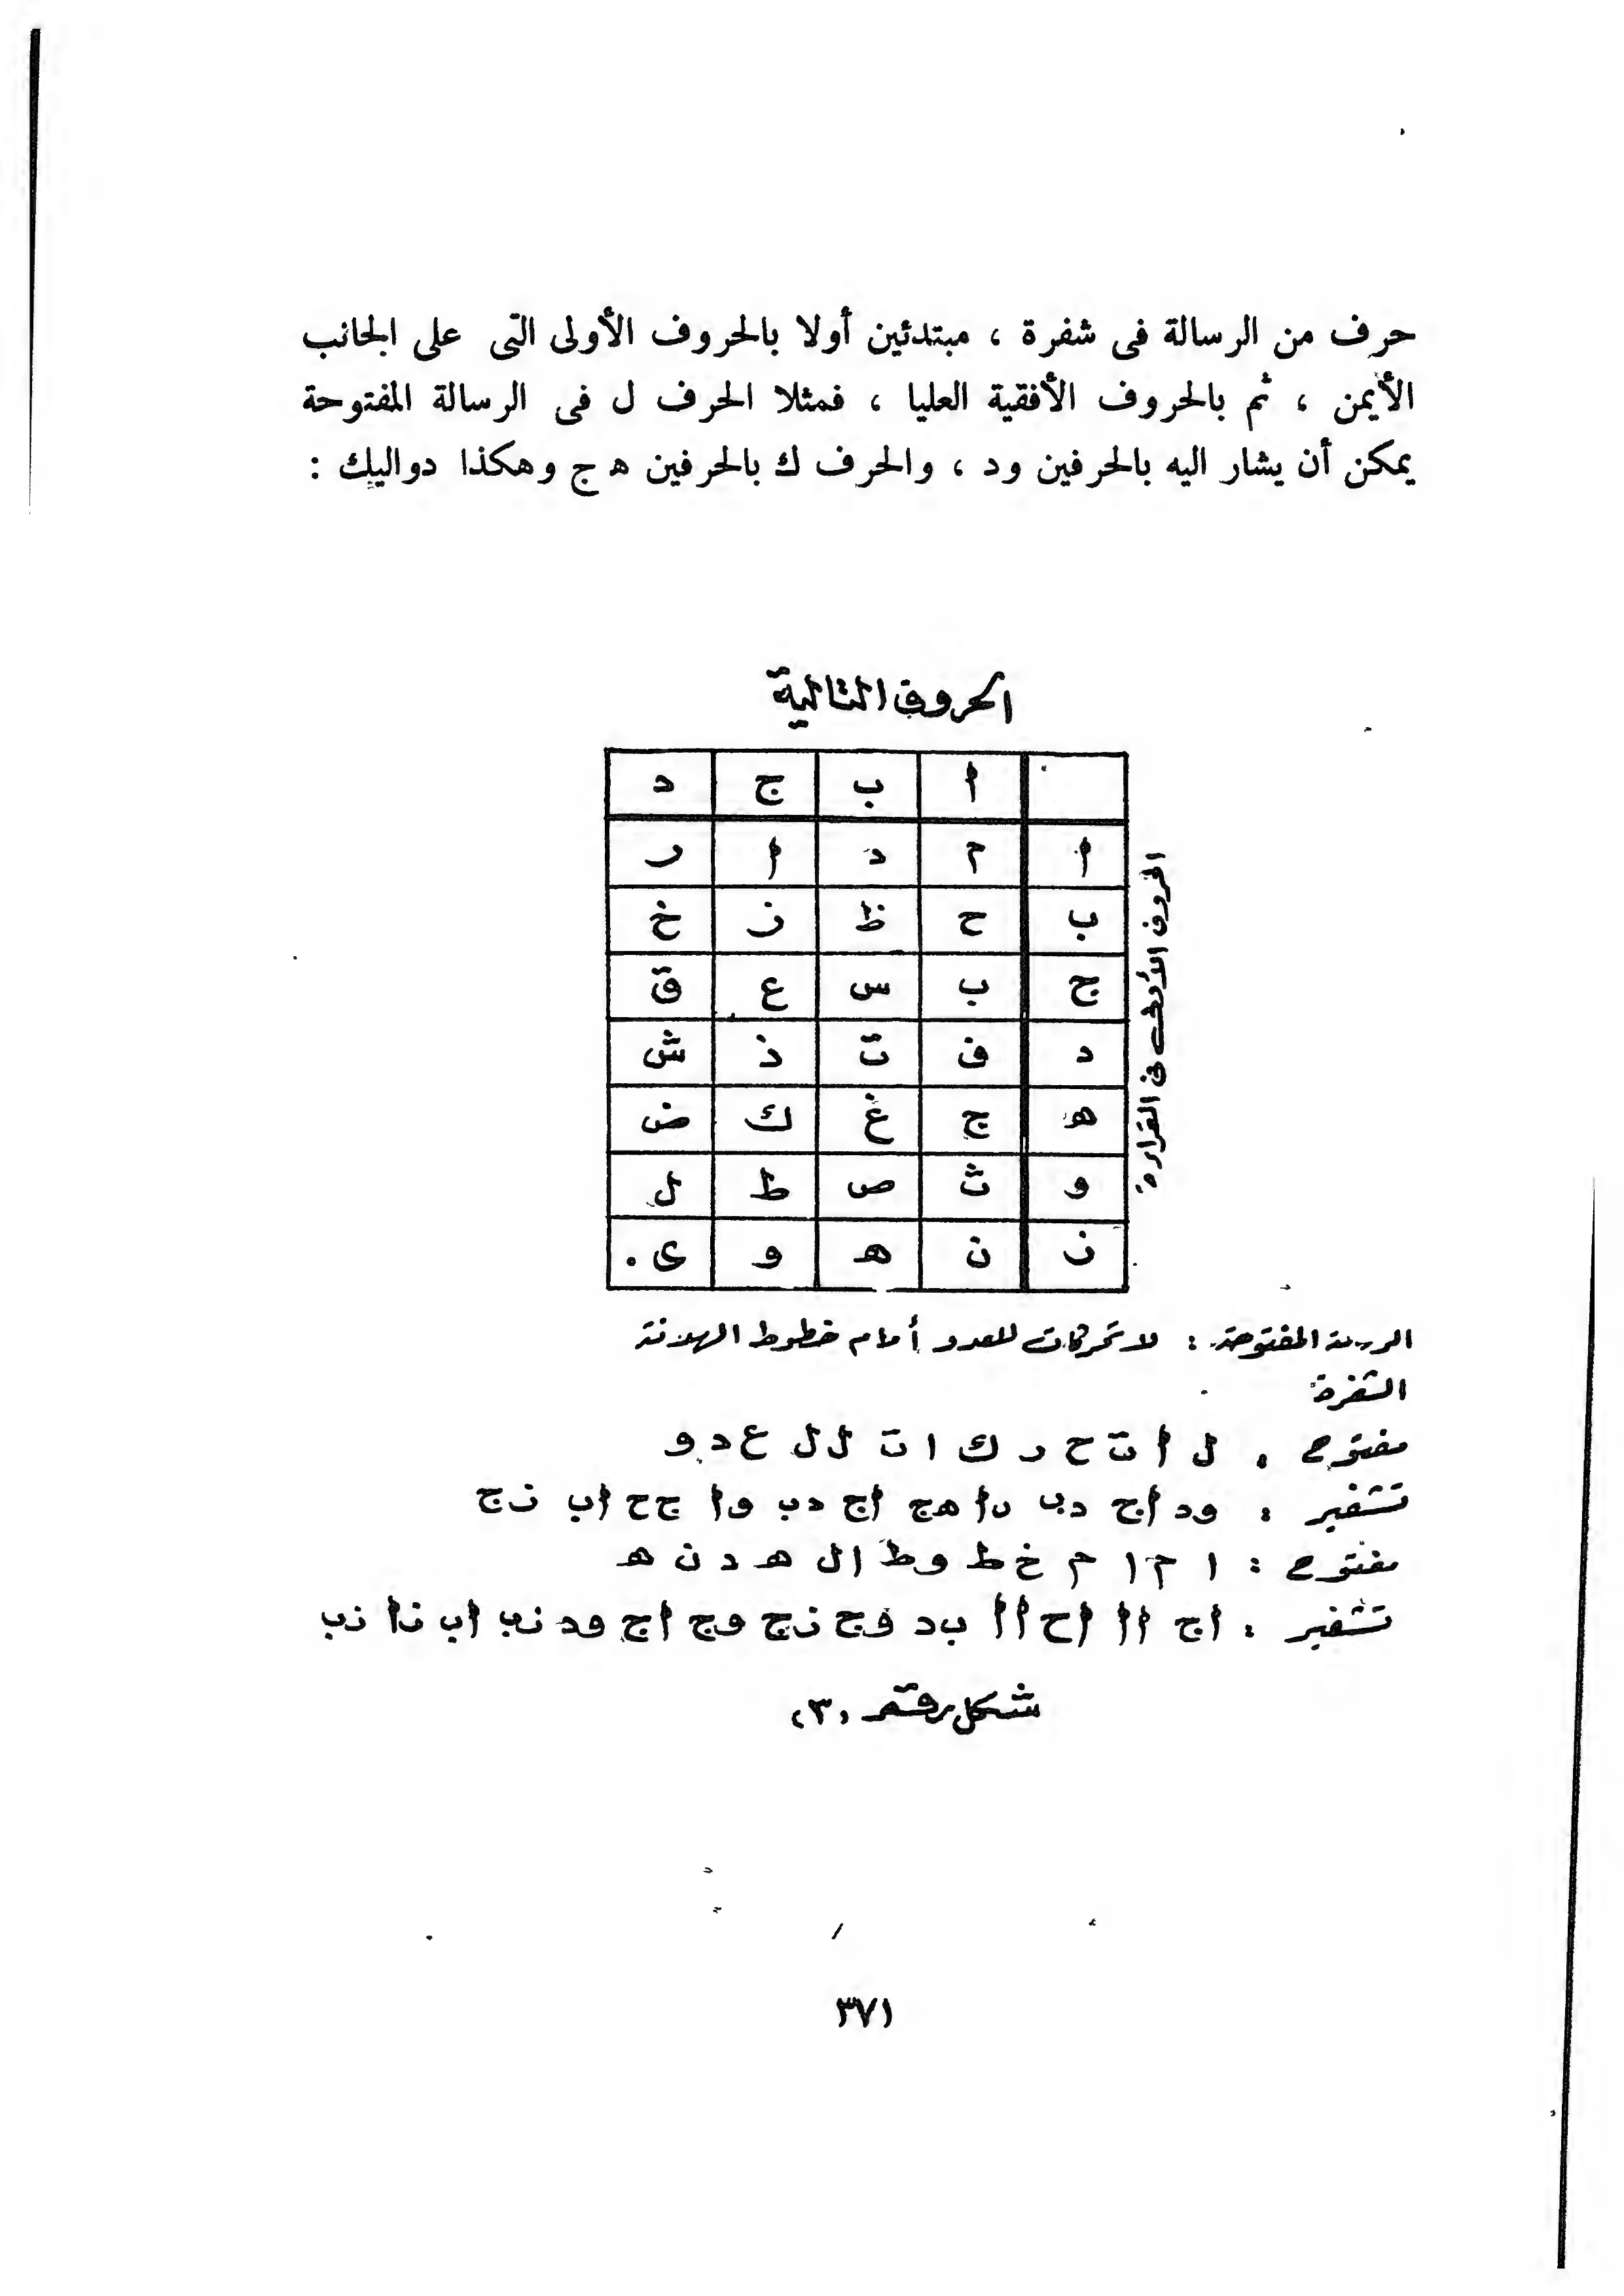 حرف من الرسالة فى شفرة ، مبتدئين أولا بالحروف الأولى التى على الجانب
الأيمن ، ثم بالحروف الأفقية العليا ، فمثلا الحرف ل فى الرسالة المفتوحة
يمكن أن يشار اليه بالحرفين ود ، والحرف ك بالحرفين ه ج وهكذا دواليك :
الحروف التالية
ا ب ج د
ا م د ا ر
ب ح ظ ز خ
ج ب س ع ق
د ف ت ذ ش
ه ج غ ك ض
و ث ص ط ل
ن ن ه و ى .
الحروف الأولى فى القراءة
المفتوحة : لا تحركات للعدو أمام خطوط الهدنة
الشفرة
مفتوح . ل ا ت ح ر ك ا ت ل ل ع د و
تشفير : ود اج دب هج اج دب وا جح اب زج
مفتوح : ا م ا م خ ط و ط ا ل ه د ن ه
تشفير : اج اا اح اا بد وج زج وج اج ود زب اب زا زب
شكل رقم (٣)
٣٧١